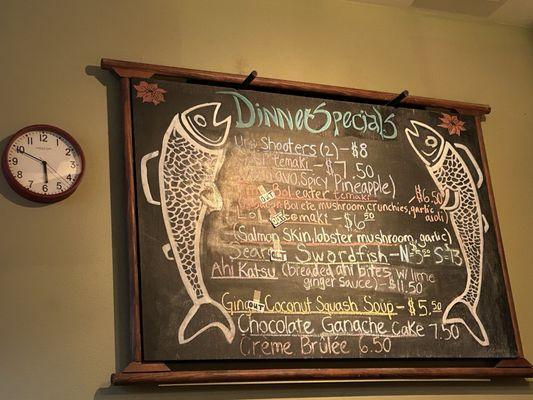 Dinner Specials
Uni Shooters (2) - $8
temaki - $7.50
Spicy Pineapple)
eater temaki
$6.50
mushroom, crunchies, garlic
aioli)
OUT
Lol temaki - $6.50
OUT
(Salmon Skin, lobster mushroom, garlic)
Swordfish -
Ahi Katsu (breaded ahi bites w/ lime
ginger sauce) - $11.50
OUT
Coconut Squash Soup - $5.50
Chocolate Ganache Cake 7.50
Creme Brûlee 6.50
12
1
2
3
4
5
6
7
8
9
10
11